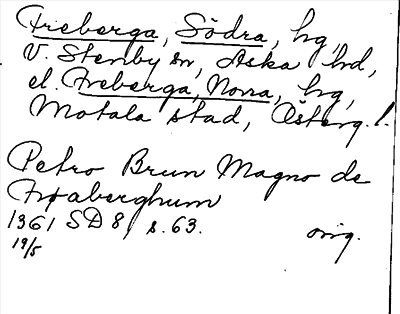 Freberga, Södra, hg,
V. Stenby sn, Aska hd,
el. Freberga, Norra, hg,
Motala stad, Österg.!
Petro Brun Magno de
Frøaberghum
1361 SD 8, s. 63. orig.
19/5